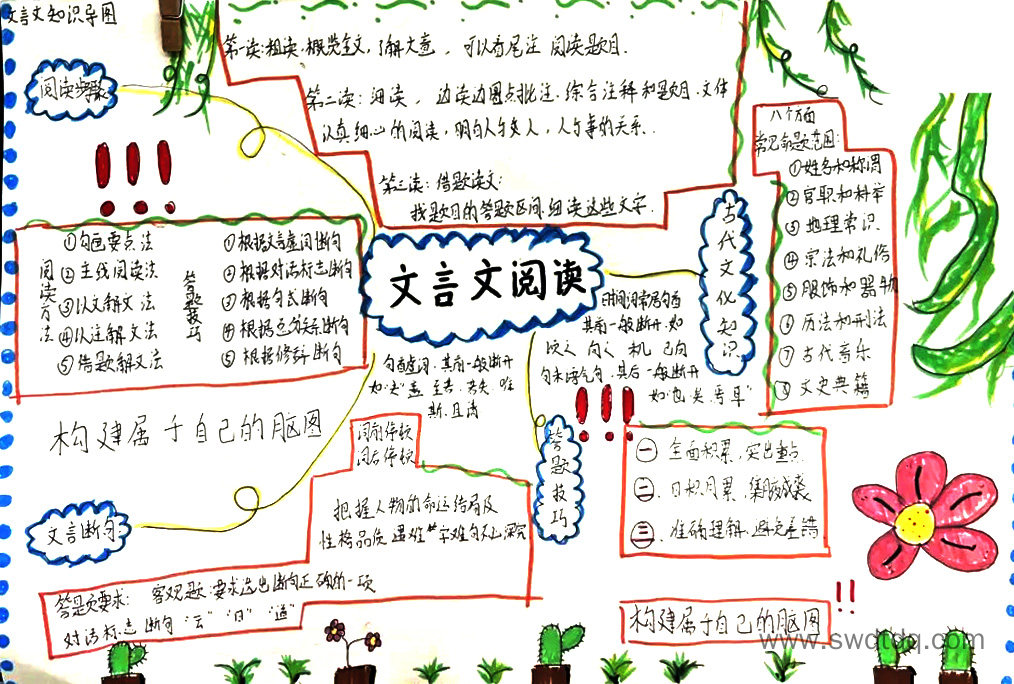 文言文知识导图
阅读步骤
第一读:粗读,概览全文,了解大意,可以看尾注 阅读题目.
第二读:细读,边读边圈点批注.综合注释和题目.文体
认真细心的阅读,明白人与文人,人与事的关系.
第三读:借题读文:
找题目的答题区间,细读这些文字.
八个方面
常见命题范围:
①姓名和称谓
②官职和科举
③地理常识
④宗法和礼俗
⑤服饰和器物
⑥历法和刑法
⑦古代音乐
⑧文史典籍
古代文化知识
文言文阅读
阅读方法
①勾画要点法
②主线阅读法
③以文解文法
④以注解文法
⑤借题解文法
答题技巧
①根据文言虚词断句
②根据对话标志断句
③根据句式断句
④根据总分关系断句
⑤根据修辞断句
其前一般断开.如
句末语气句,其后一般断开
如"也、矣、乎、耳"
句首虚词,其前一般断开
构建属于自己的脑图
词前停顿
词后停顿
答题技巧
㊀ 全面积累,突出重点
㊁ 日积月累,集腋成裘
㊂ 准确理解,避免差错
把握人物的命运结局及
性格品质 遇难字难句不必深究
文言断句
答题要求: 客观题:要求选出断句正确的一项
对话标志断句 "云" "曰" "道"
构建属于自己的脑图
www.swdtdq.com